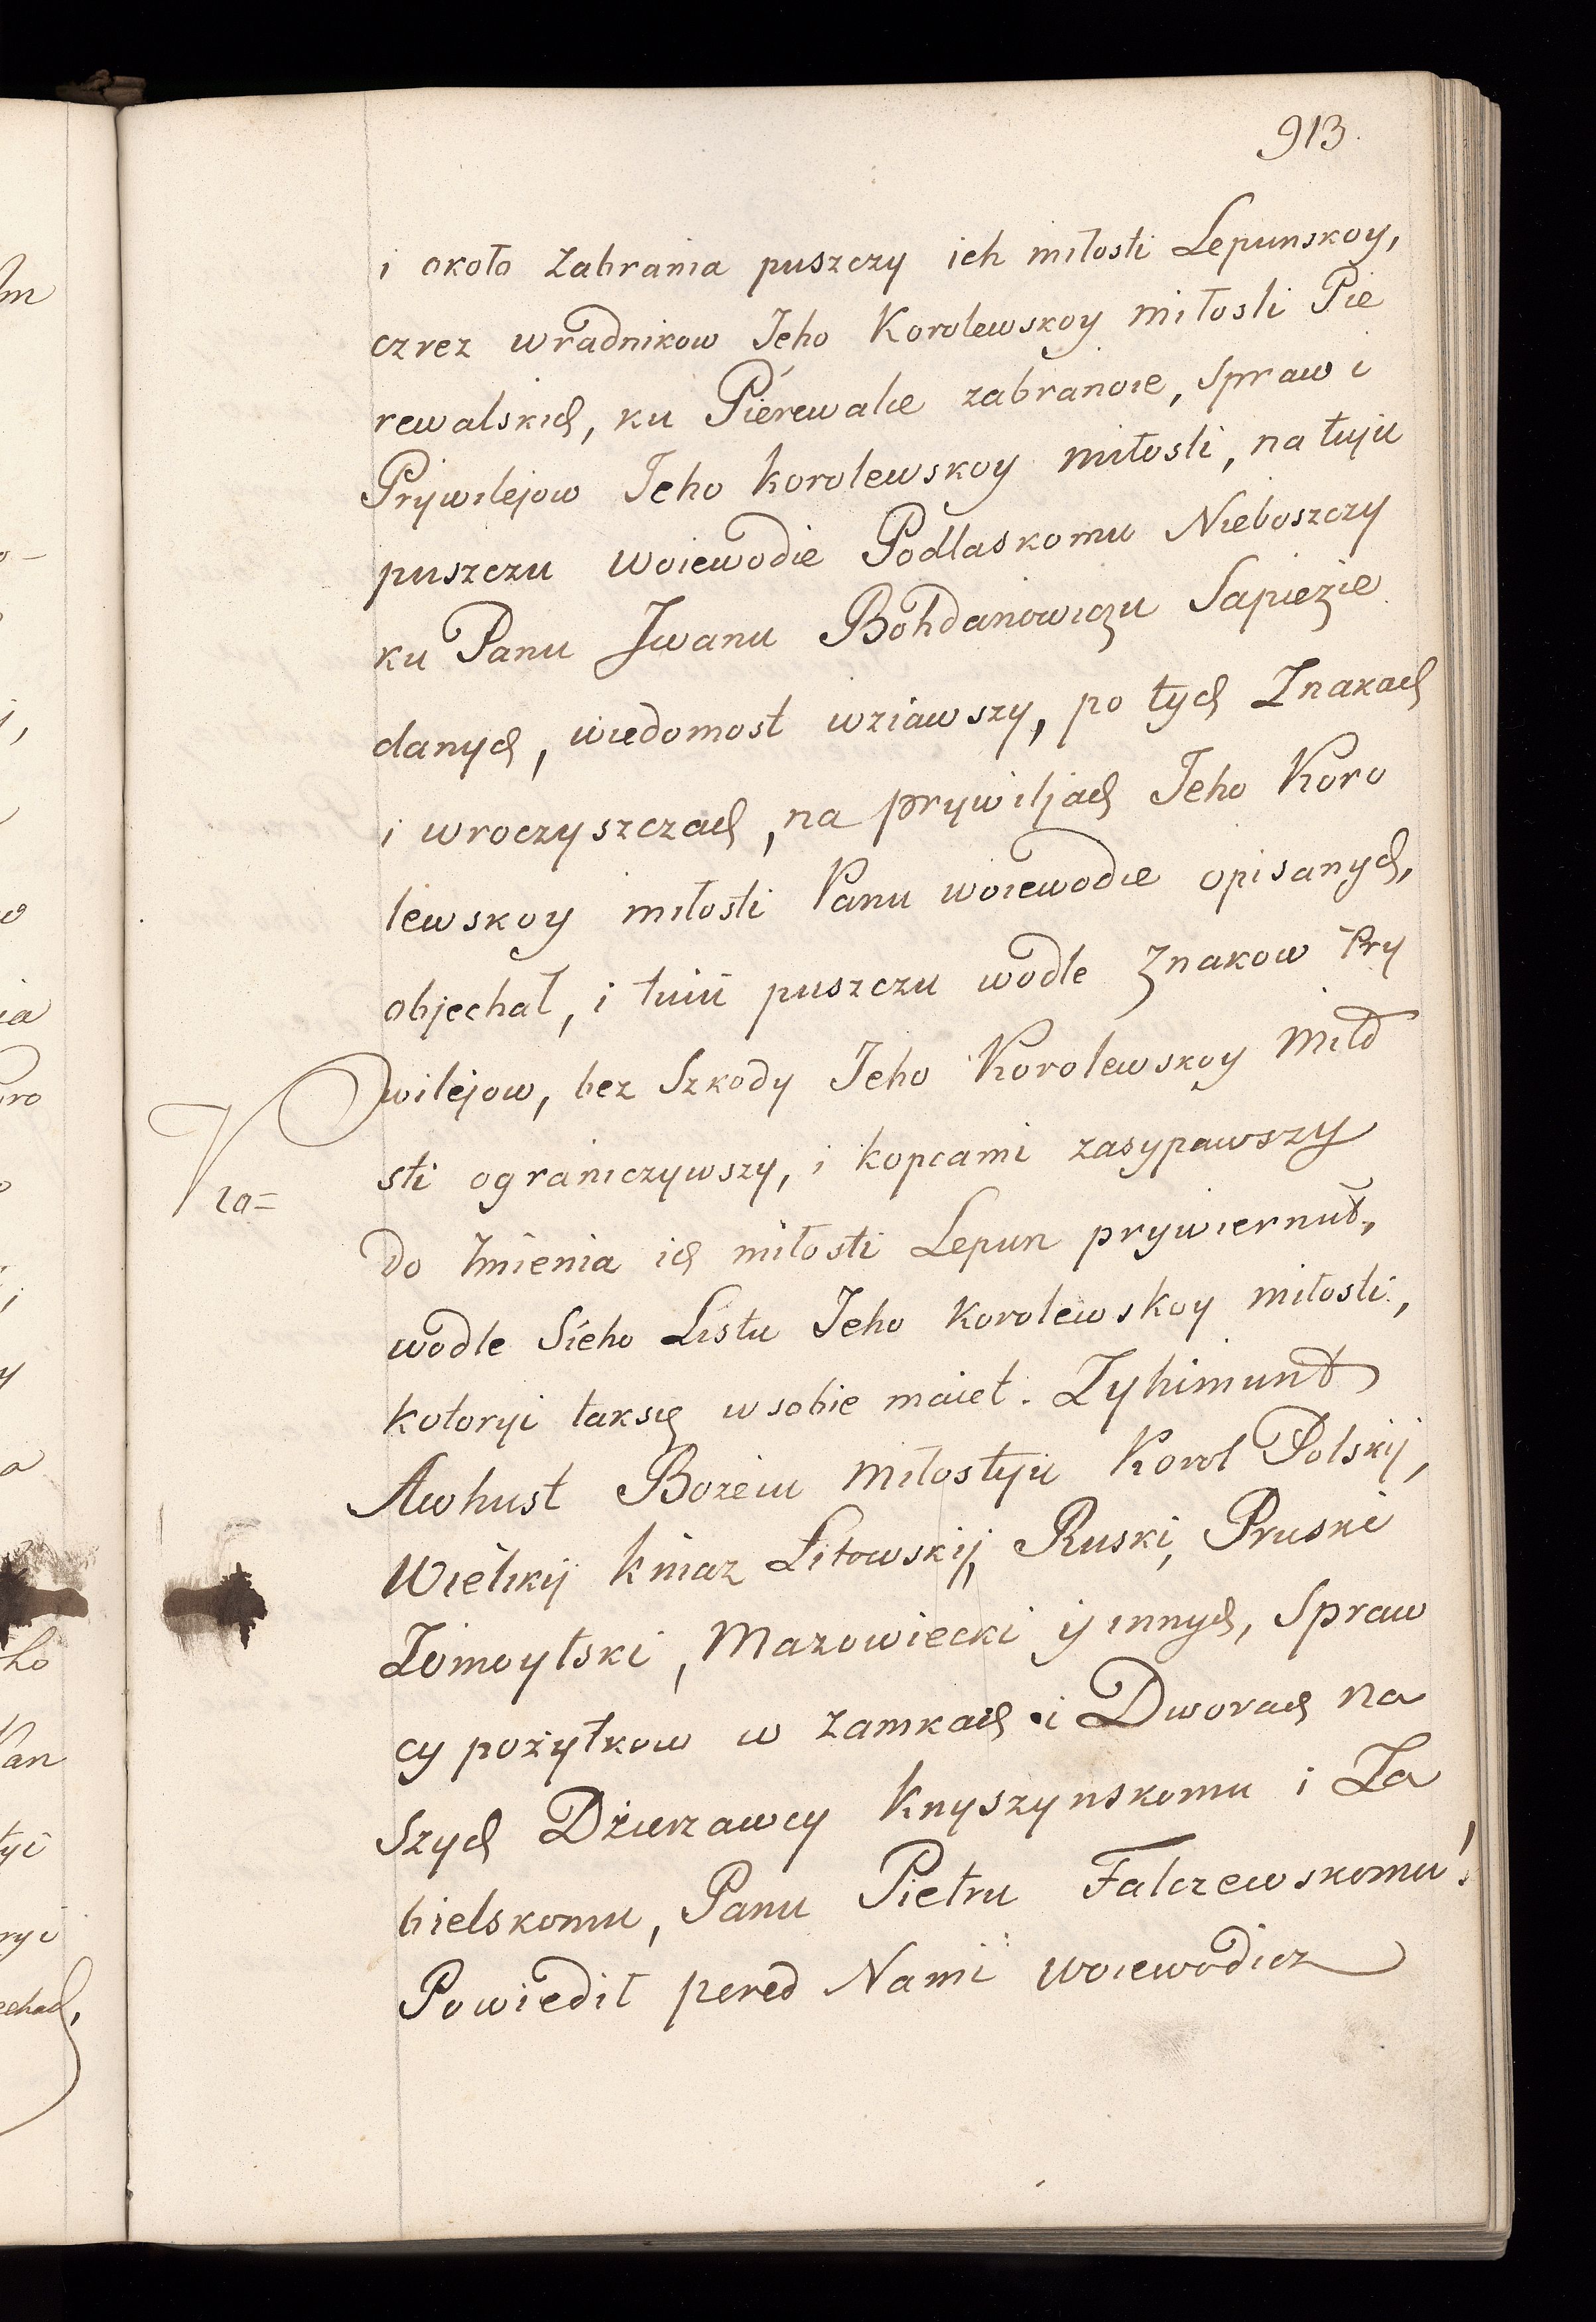 913.
i około Zabrania puszczy ich miłosti Lepunskoy,
czrez wradnikow Jeho Korolewskoy miłosti Pie
rewalskich, ku Pierewalie zabranoie, spraw i
Prywilejow Jeho korolewskoy miłosti, na tuju
puszczu woiewodie Podlaskomu Nieboszczy
ku Panu Jwanu Bohdanowiczu Sapiezie
danych, wiedomost wziawszy, po tych Znakach
i wroczyszczach, na prywiljach Jeho Koro
lewskoy miłosti Panu woiewodie opisanych,
objechał, i tuiu puszczu wodle Znakow Pry
wilejow, bez Szkody Jeho Korolewskoy Miło
sti ograniczywszy, i kopcami zasypawszy
do Jmienia ich miłosti Lepun prywiernuł,
wodle Sieho Listu Jeho Korolewskoy miłosti,
kotoryi taksię w sobie maiet. Zyhimunt
Awhust Bożeiu Miłostyiu Korol Polskij,
Wielikij kniaz Litowskij, Ruski, Pruski
Żomoytski, Mazowiecki ij innych, Spraw
cy pożytkow w zamkach i Dworach Na
szych Dżierzawcy Knyszynskomu i Za
bielskomu, Panu Pietru Falczewskomu:
Powiedił pered Nami woiewodicz